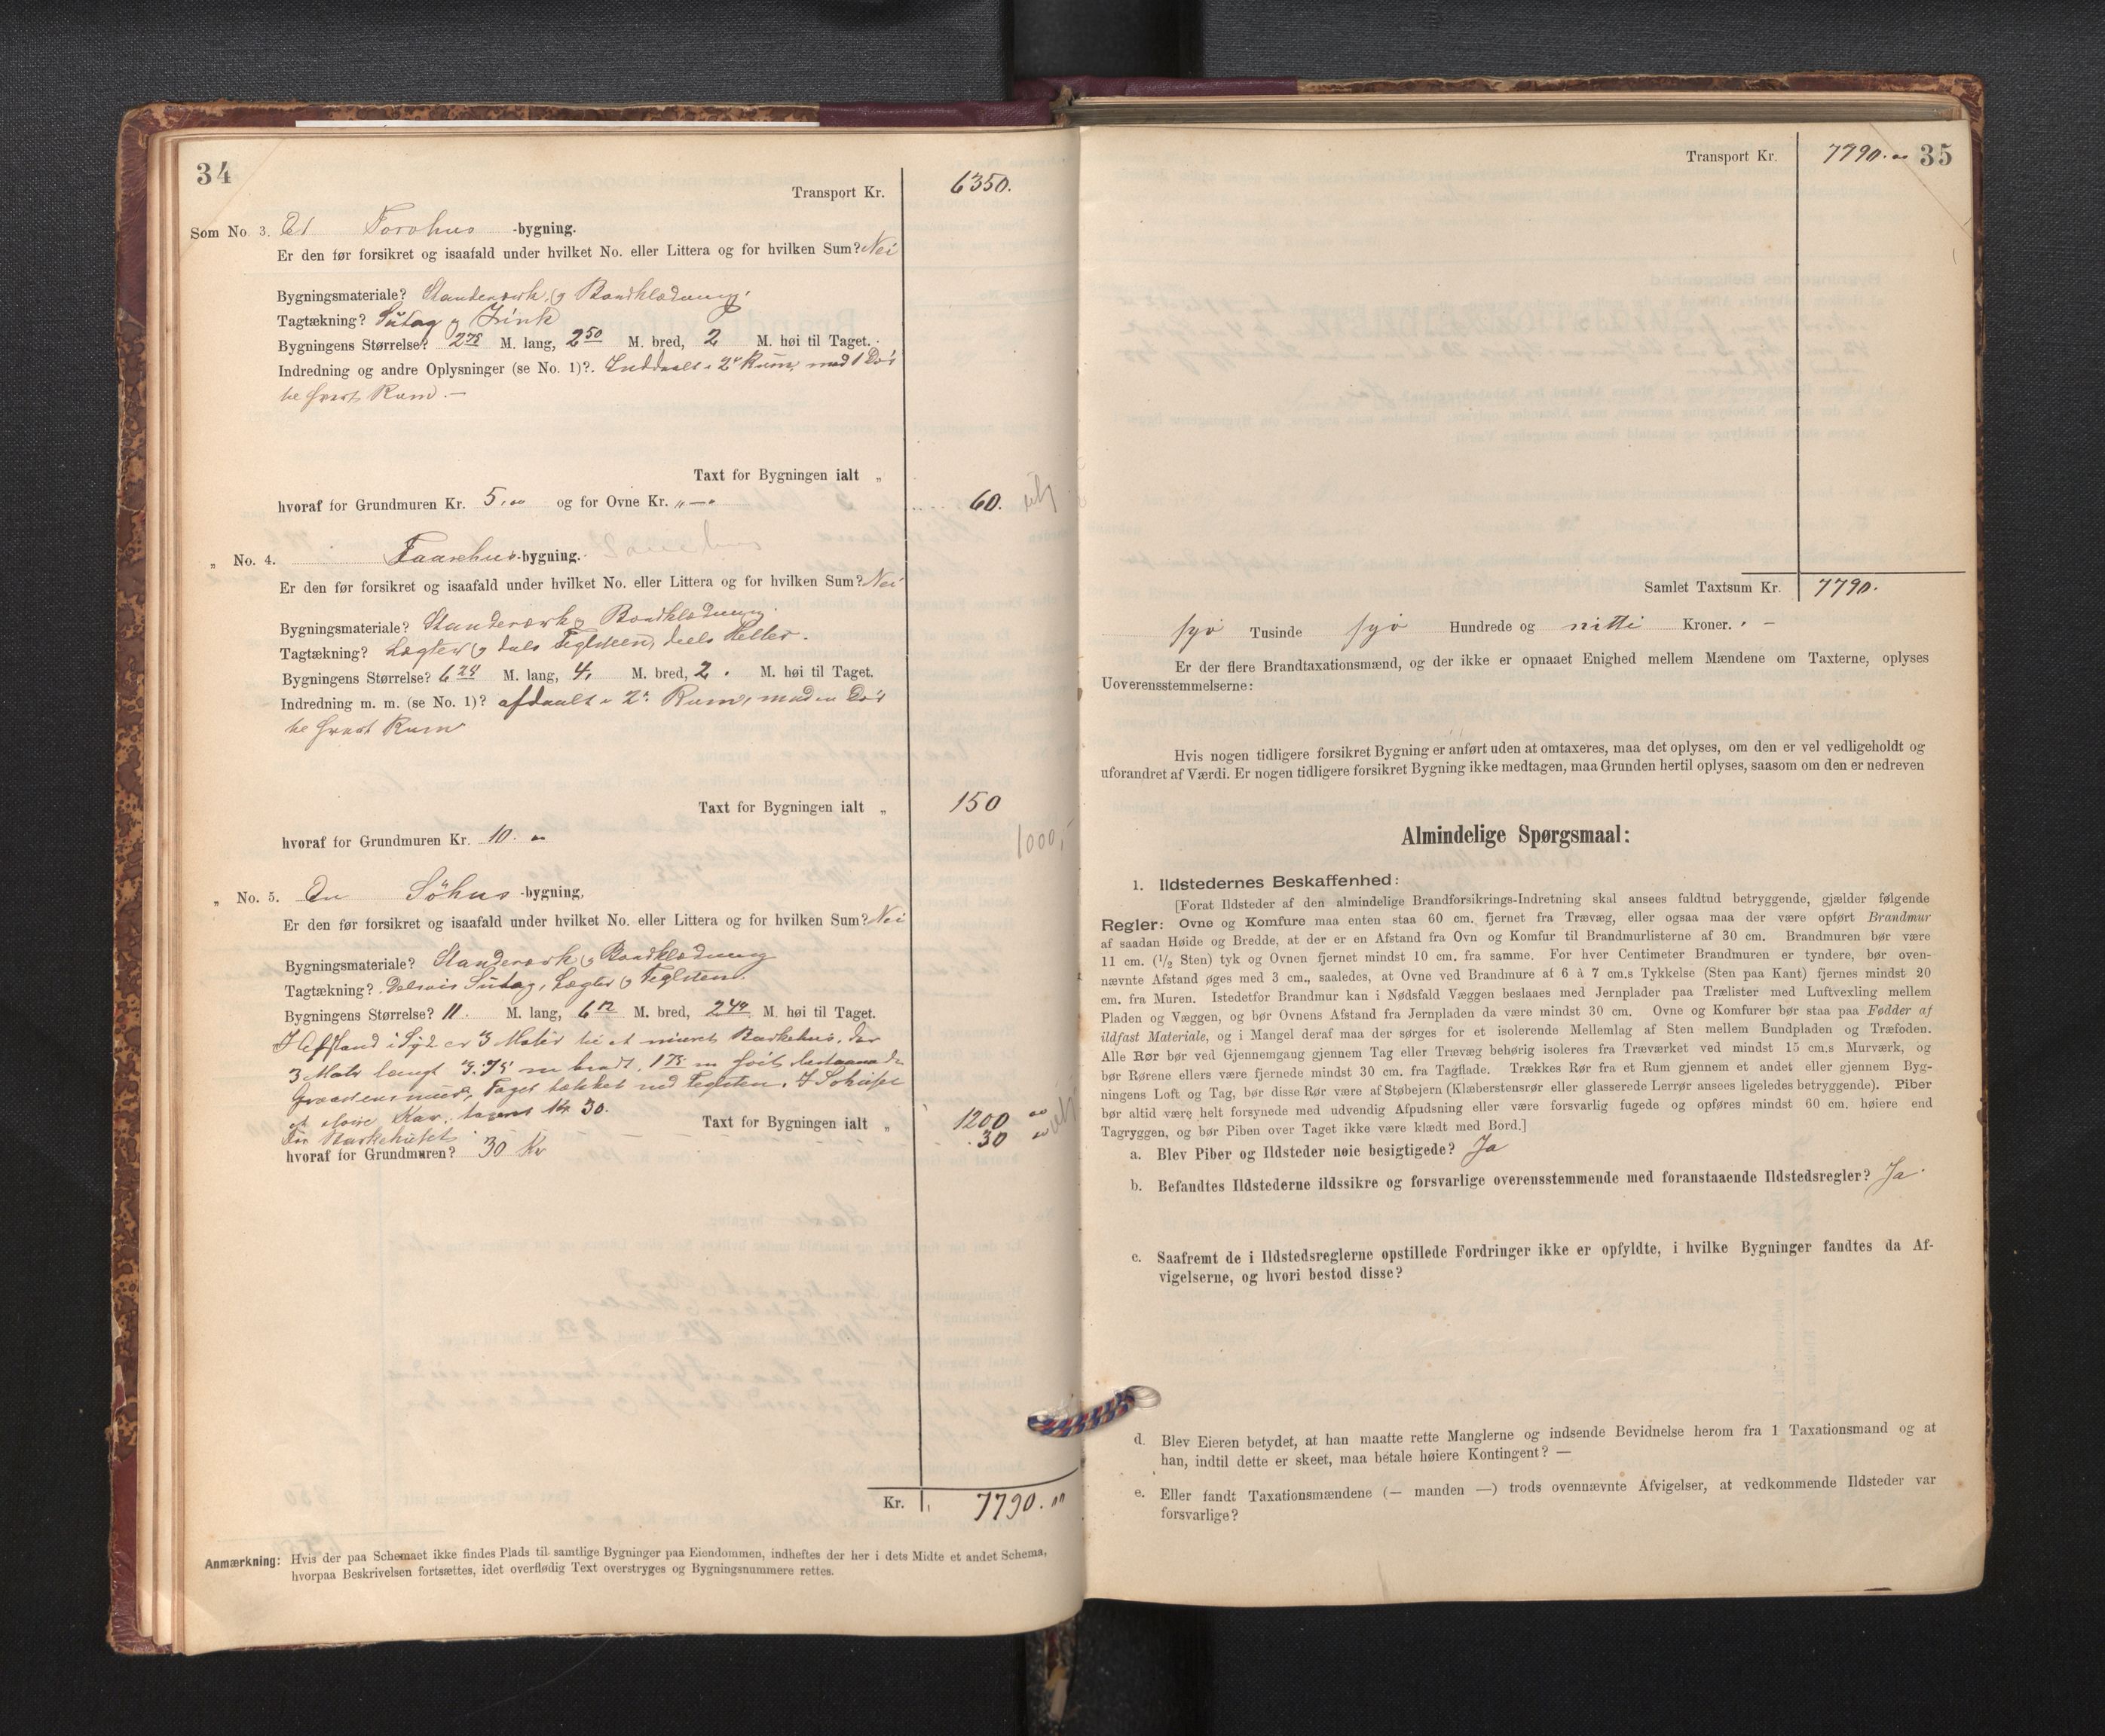 34
Transport Kr. 6350.
Som No. 3. Et Torvhus -bygning.
Er den før forsikret og isaafald under hvilket No. eller Littera og for hvilken Sum? Nei
Bygningsmateriale? Standerværk og Bordklædning.
Tagtækning? Sutag og Zink
Bygningens Størrelse? 2 75 M. lang, 2 50 M. bred, 2 M. høi til Taget.
Indredning og andre Oplysninger (se No. 1)? Inddeelt i 2de Rum, med 1 Dør
til hvert Rum. —
Taxt for Bygningen ialt „
hvoraf for Grundmuren Kr. 5,00 og for Ovne Kr. „—" 60.
„ No. 4. Faarehus-bygning.
Er den før forsikret og isaafald under hvilket No. eller Littera og for hvilken Sum? Nei
Bygningsmateriale? Standerværk og Bordklædning.
Tagtækning? Lægter og dels Teglsteen, deels Heller.
Bygningens Størrelse? 6 24 M. lang, 4, M. bred, 2. M. høi til Taget.
Indredning m. m. (se No. 1)? afdeelt i 2de Rum, med en Dør
til hvert Rum
Taxt for Bygningen ialt „ 150
hvoraf for Grundmuren Kr. 10.
1000,-
„ No. 5. En Söhus -bygning,
Er den før forsikret og isaafald under hvilket No. eller Littera og for hvilken Sum? Nei
Bygningsmateriale? Standerværk og Bordklædning
Tagtækning? Delvis Sutag, Lægter og Teglsten.
Bygningens Størrelse? 11. M. lang, 6 12 M. bred, 2 40 M. høi til Taget.
I Afstand i Syd er 3 Meter til et muret Barkehus, der
3 Meter langt 3.75 m bredt, 1 75 m høit bestaaende
Graastensmuur, Taget tækket med Teglsten. I
Kar, taxeret Kr 30.
Taxt for Bygningen ialt „ 1200
For Barkehuset 30
hvoraf for Grundmuren? 30 Kr
Kr. 7790.00
Anmærkning: Hvis der paa Schemaet ikke findes Plads til samtlige Bygninger paa Eiendommen, indheftes der her i dets Midte et andet Schema,
hvorpaa Beskrivelsen fortsættes, idet overflødig Text overstryges og Bygningsnummere rettes.
Transport Kr. 7790.00 35
Samlet Taxtsum Kr. 7790.
syv Tusinde syv Hundrede og nitti Kroner. -
Er der flere Brandtaxationsmænd, og der ikke er opnaaet Enighed mellem Mændene om Taxterne, oplyses
Uoverensstemmelserne:
Hvis nogen tidligere forsikret Bygning er anført uden at omtaxeres, maa det oplyses, om den er vel vedligeholdt og
uforandret af Værdi. Er nogen tidligere forsikret Bygning ikke medtagen, maa Grunden hertil oplyses, saasom om den er nedreven
Almindelige Spørgsmaal:
1. Ildstedernes Beskaffenhed:
[Forat Ildsteder af den almindelige Brandforsikrings-Indretning skal ansees fuldtud betryggende, gjælder følgende
Regler: Ovne og Komfure maa enten staa 60 cm. fjernet fra Trævæg, eller ogsaa maa der være opført Brandmur
af saadan Høide og Bredde, at der er en Afstand fra Ovn og Komfur til Brandmurlisterne af 30 cm. Brandmuren bør være
11 cm. (1/2 Sten) tyk og Ovnen fjernet mindst 10 cm. fra samme. For hver Centimeter Brandmuren er tyndere, bør oven-
nævnte Afstand øges med 3 cm., saaledes, at Ovne ved Brandmure af 6 à 7 cm.s Tykkelse (Sten paa Kant) fjernes mindst 20
cm. fra Muren. Istedetfor Brandmur kan i Nødsfald Væggen beslaaes med Jernplader paa Trælister med Luftvexling mellem
Pladen og Væggen, og bør Ovnens Afstand fra Jernpladen da være mindst 30 cm. Ovne og Komfurer bør staa paa Fødder af
ildfast Materiale, og i Mangel deraf maa der sørges for et isolerende Mellemlag af Sten mellem Bundpladen og Træfoden.
Alle Rør bør ved Gjennemgang gjennem Tag eller Trævæg behørig isoleres fra Træværket ved mindst 15 cm.s Murværk, og
bør Rørene ellers være fjernede mindst 30 cm. fra Tagflade. Trækkes Rør fra et Rum gjennem et andet eller gjennem Byg-
ningens Loft og Tag, bør disse Rør være af Støbejern (Klæberstensrør eller glasserede Lerrør ansees ligeledes betryggende). Piber
bør altid være helt forsynede med udvendig Afpudsning eller være forsvarlig fugede og opføres mindst 60 cm. høiere end
Tagryggen, og bør Piben over Taget ikke være klædt med Bord.]
a. Blev Piber og Ildsteder nøie besigtigede? Ja
b. Befandtes Ildstederne ildssikre og forsvarlige overensstemmende med foranstaaende Ildstedsregler? Ja.
c. Saafremt de i Ildstedsreglerne opstillede Fordringer ikke er opfyldte, i hvilke Bygninger fandtes da Af-
vigelserne, og hvori bestod disse?
d. Blev Eieren betydet, at han maatte rette Manglerne og indsende Bevidnelse herom fra 1 Taxationsmand og at
han, indtil dette er skeet, maa betale høiere Kontingent? —
e. Eller fandt Taxationsmændene (— manden —) trods ovennævnte Afvigelser, at vedkommende Ildsteder var
forsvarlige?